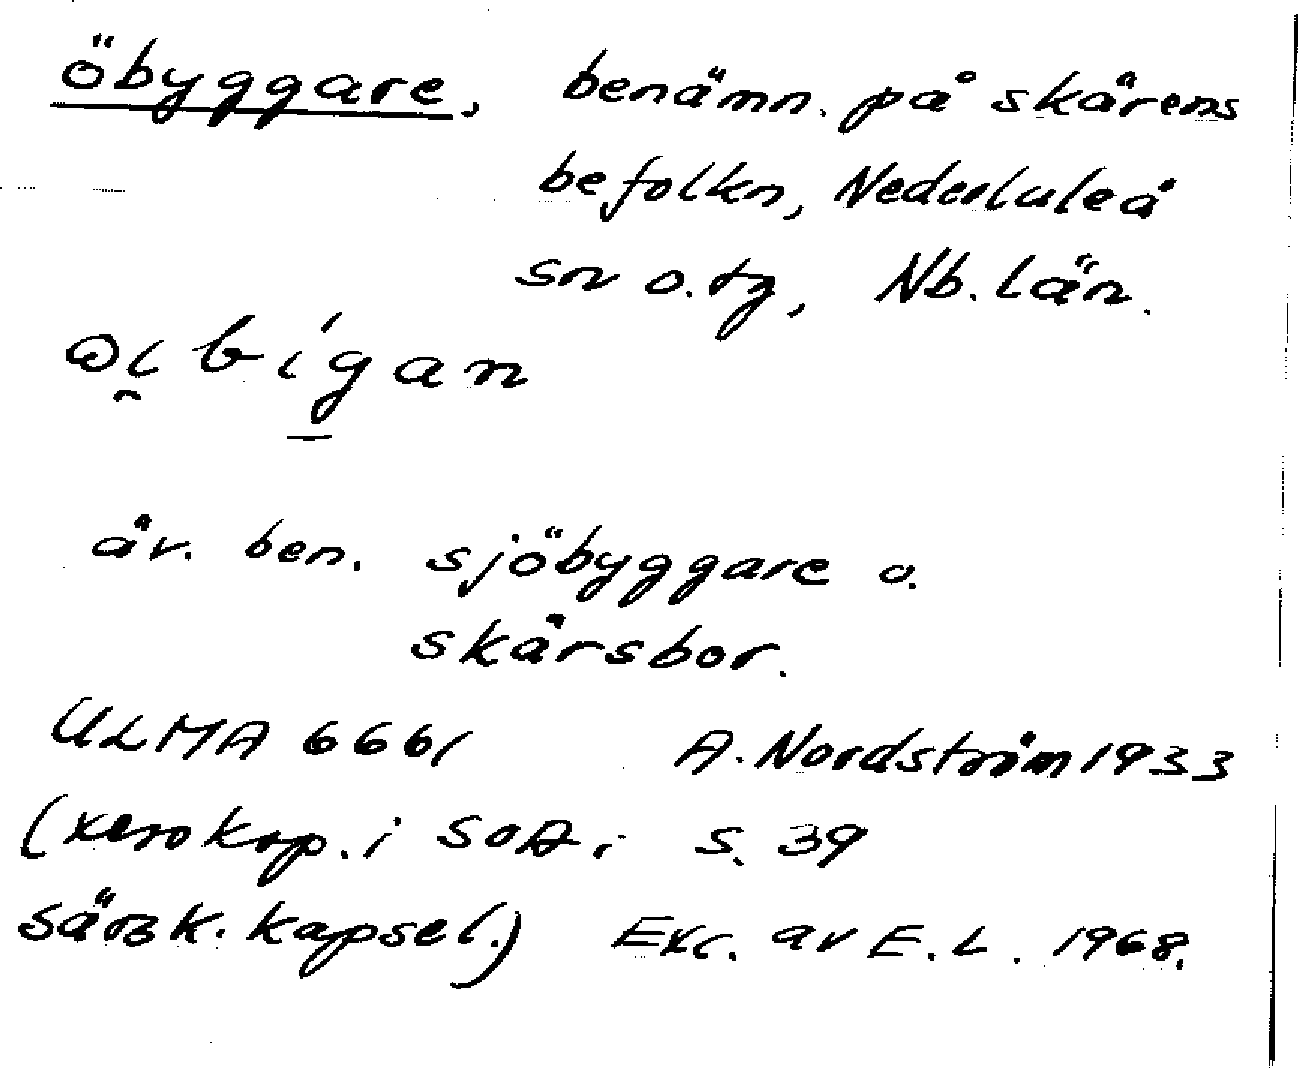 öbyggare, benämn. på skärens
befolkn, Nederluleå
sn o. tg, Nb. län.
bígan
äv. ben. sjöbyggare o.
skärsbor.
ULMA 6661 A. Nordström 1933
(xerokop. i SOA i s. 39
särsk. kapsel.) Exc. av E. L. 1968.